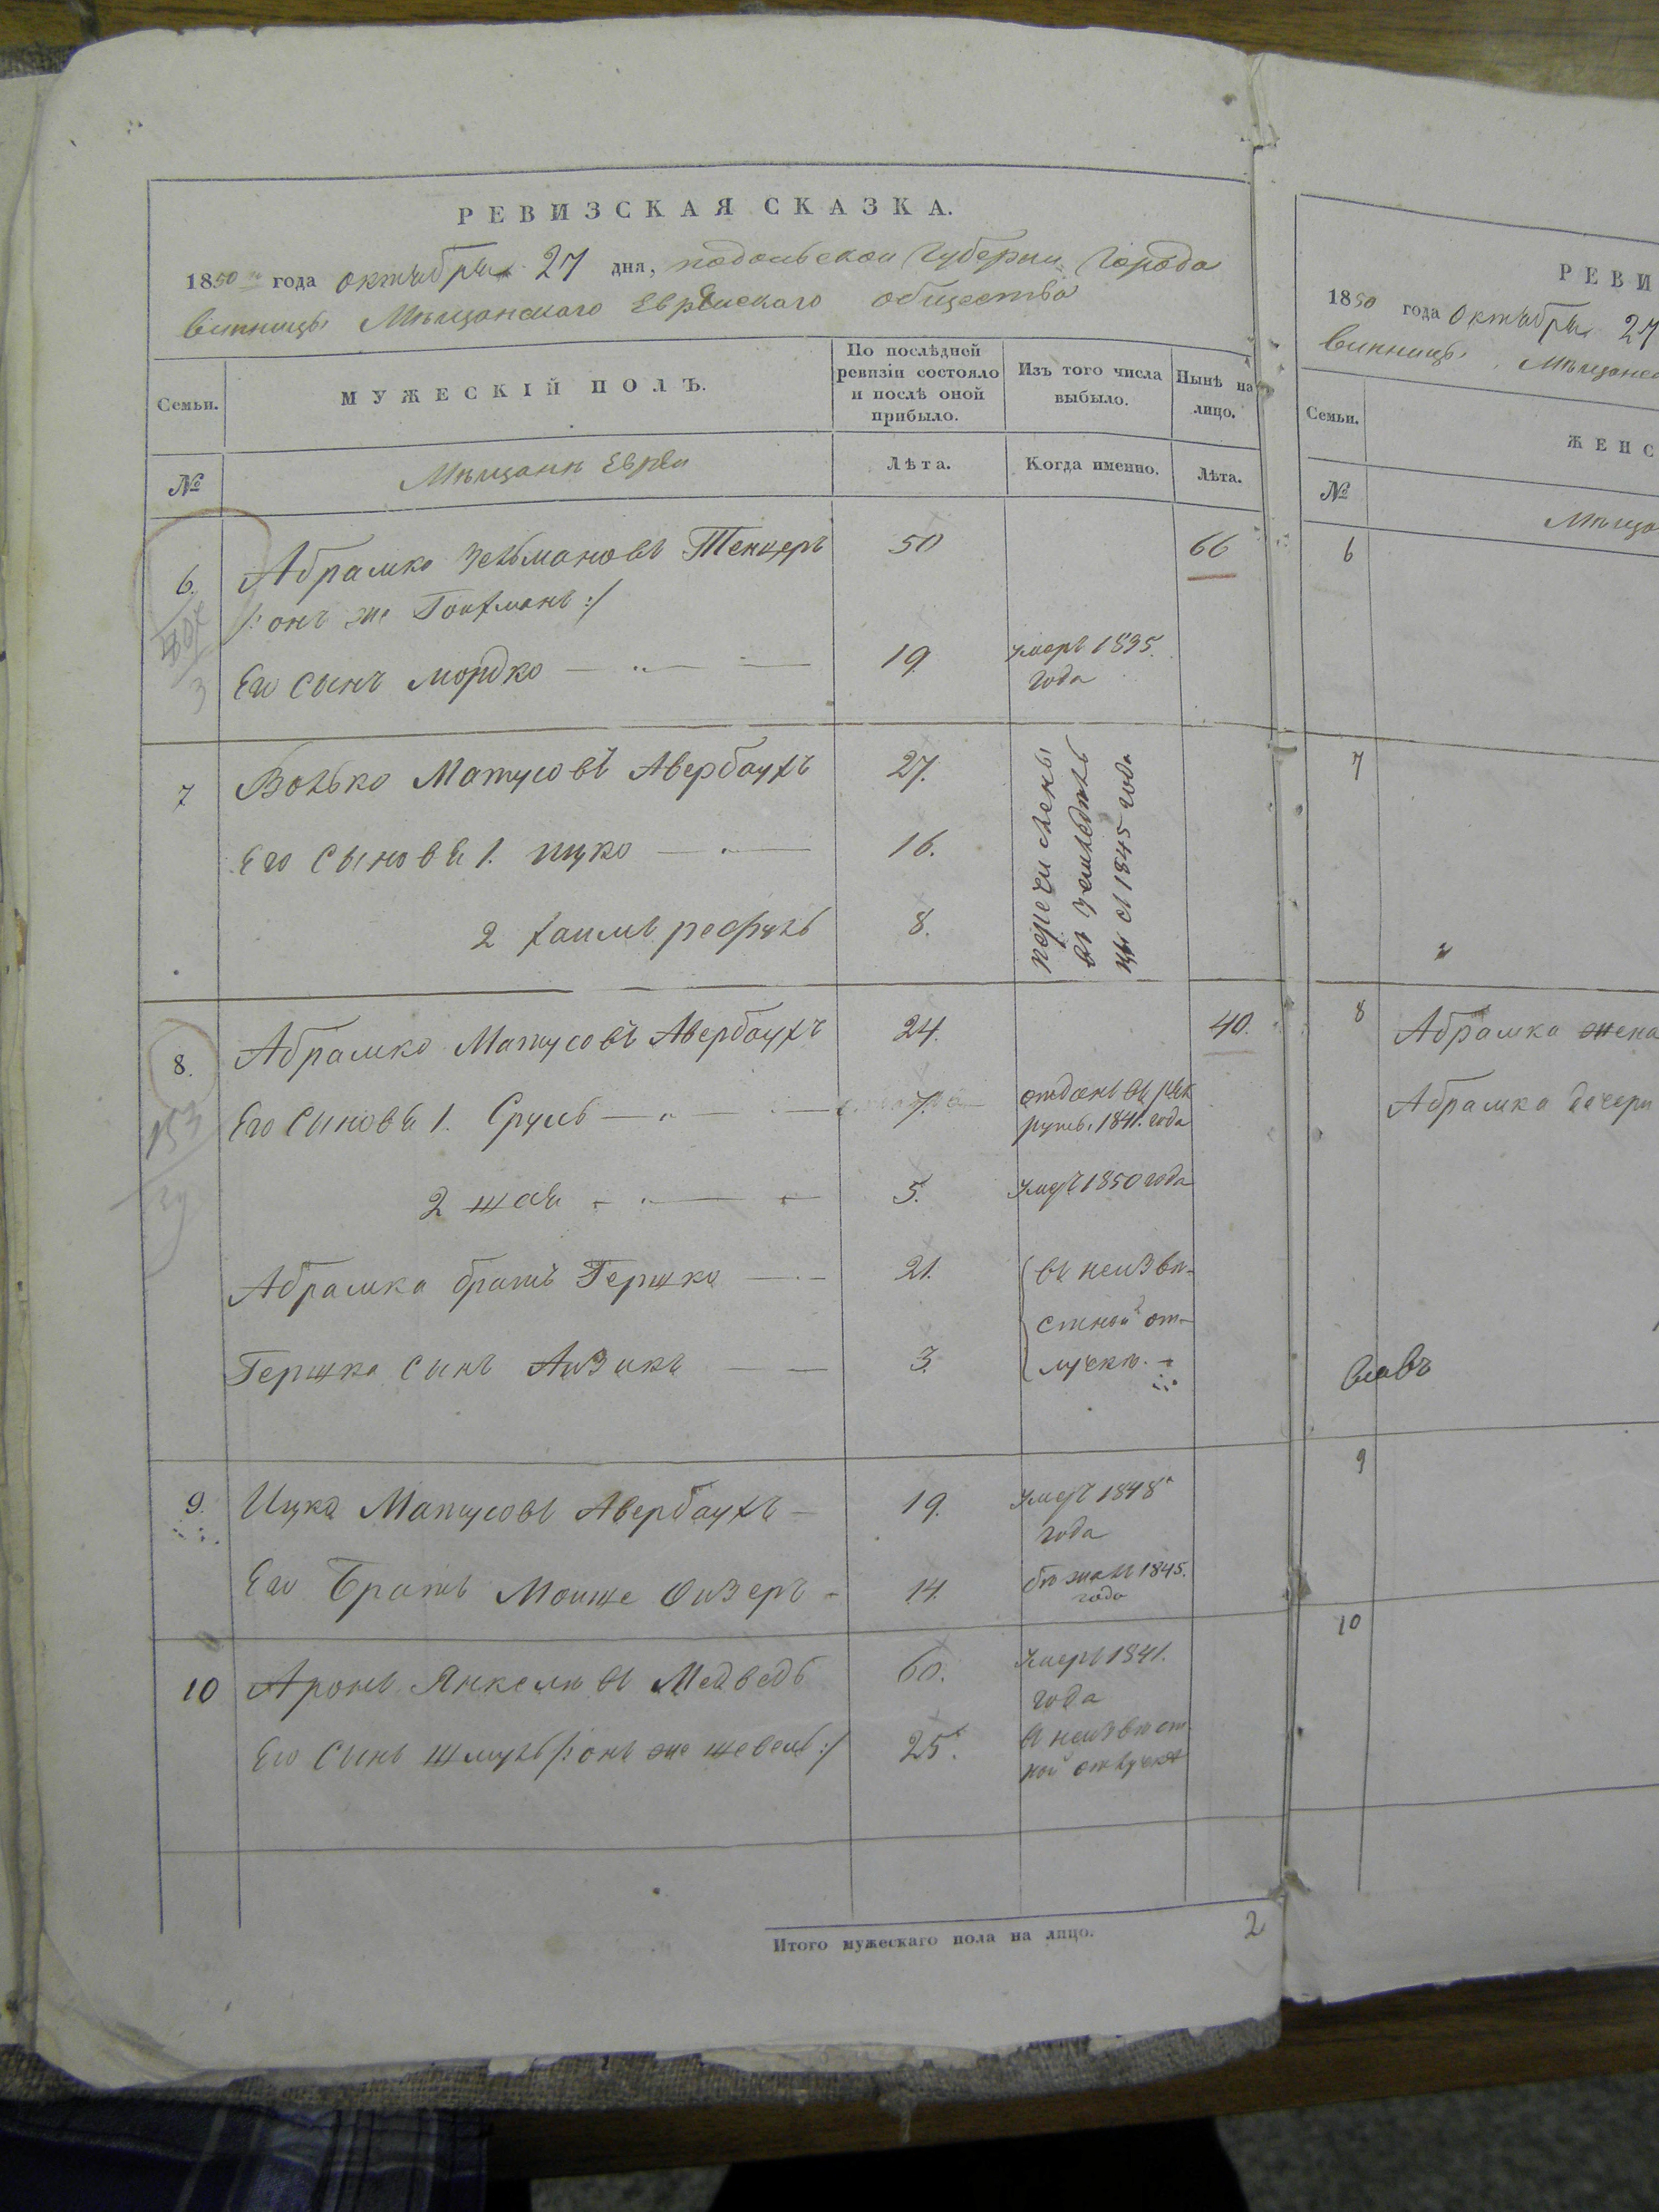 РЕВИЗСКАЯ СКАЗКА.
1850 года октября 27 дня, подольской губерни города
винницы Мѣщанского Еврейского общества
Семьи.
МУЖЕСКІЙ ПОЛЪ.
По послѣдней ревизіи состояло и послѣ оной прибыло.
Изъ того числа выбыло.
Нынѣ на лицо.
№
Мѣщани Евреи
Лѣта.
Когда именно.
Лѣта.
6. Абрамко Зельмановъ Тенцеръ 50 66
/: онъ же Гойхманъ :/
Его сынъ мордко 19 умеръ 1835.
года
7 Волько Матусовъ Авербаухъ 27.
Его сыновья 1. ицко 16.
2 хаимъ рефуль 8.
перечислены
въ земледѣль
цы съ 1845 года
8. Абрамко Матусовъ Авербаухъ 24. 40.
Его сыновья 1. Сруль 7. отданъ въ рек
руты 1841. года
2 шая 5. умеръ 1850 года
Абрамка братъ Гершко 21. въ неизвѣ-
стной от-
Гершка сынъ Айзикъ 3. лучки.
9. Ицко Матусовъ Авербаухъ 19. умеръ 1848
года
Его Братъ Мойше Ойзеръ 14. бѣжалъ 1845.
года
10 Аронъ Янкелевъ Медведь 60. умеръ 1841.
года
Его сынъ шмуль /: онъ же шевель :/ 25. в неизвѣст
ной отлучке
Итого мужескаго пола на лицо. 2
РЕВИ
1850 года октября 27
винницы Мѣщанск
Семьи.
ЖЕНС
№
Мѣща
6
7
8 Абрамка жена
Абрамка дочери
9
10